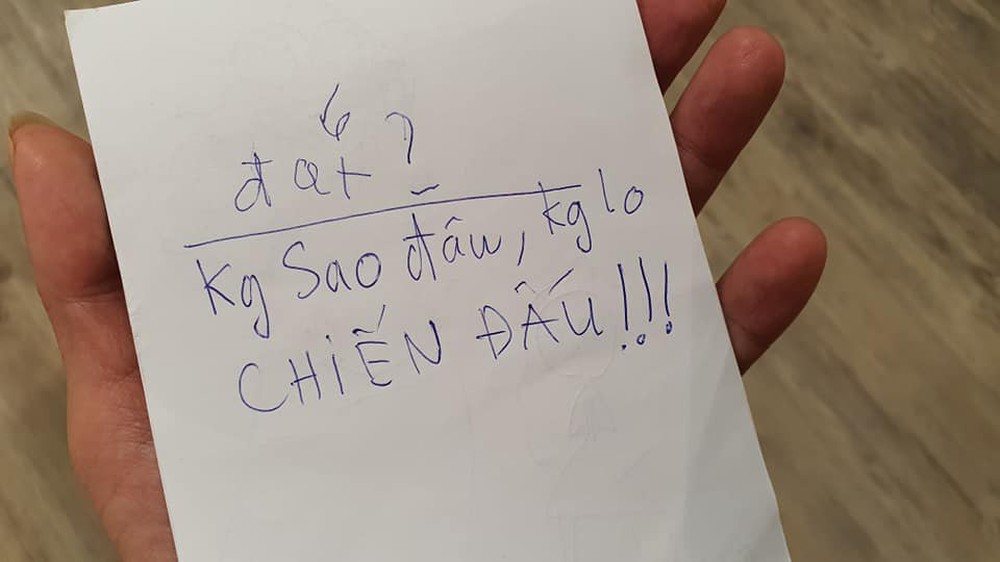 đạt ?
Kg Sao đâu, kg lo
CHIẾN ĐẤU!!!